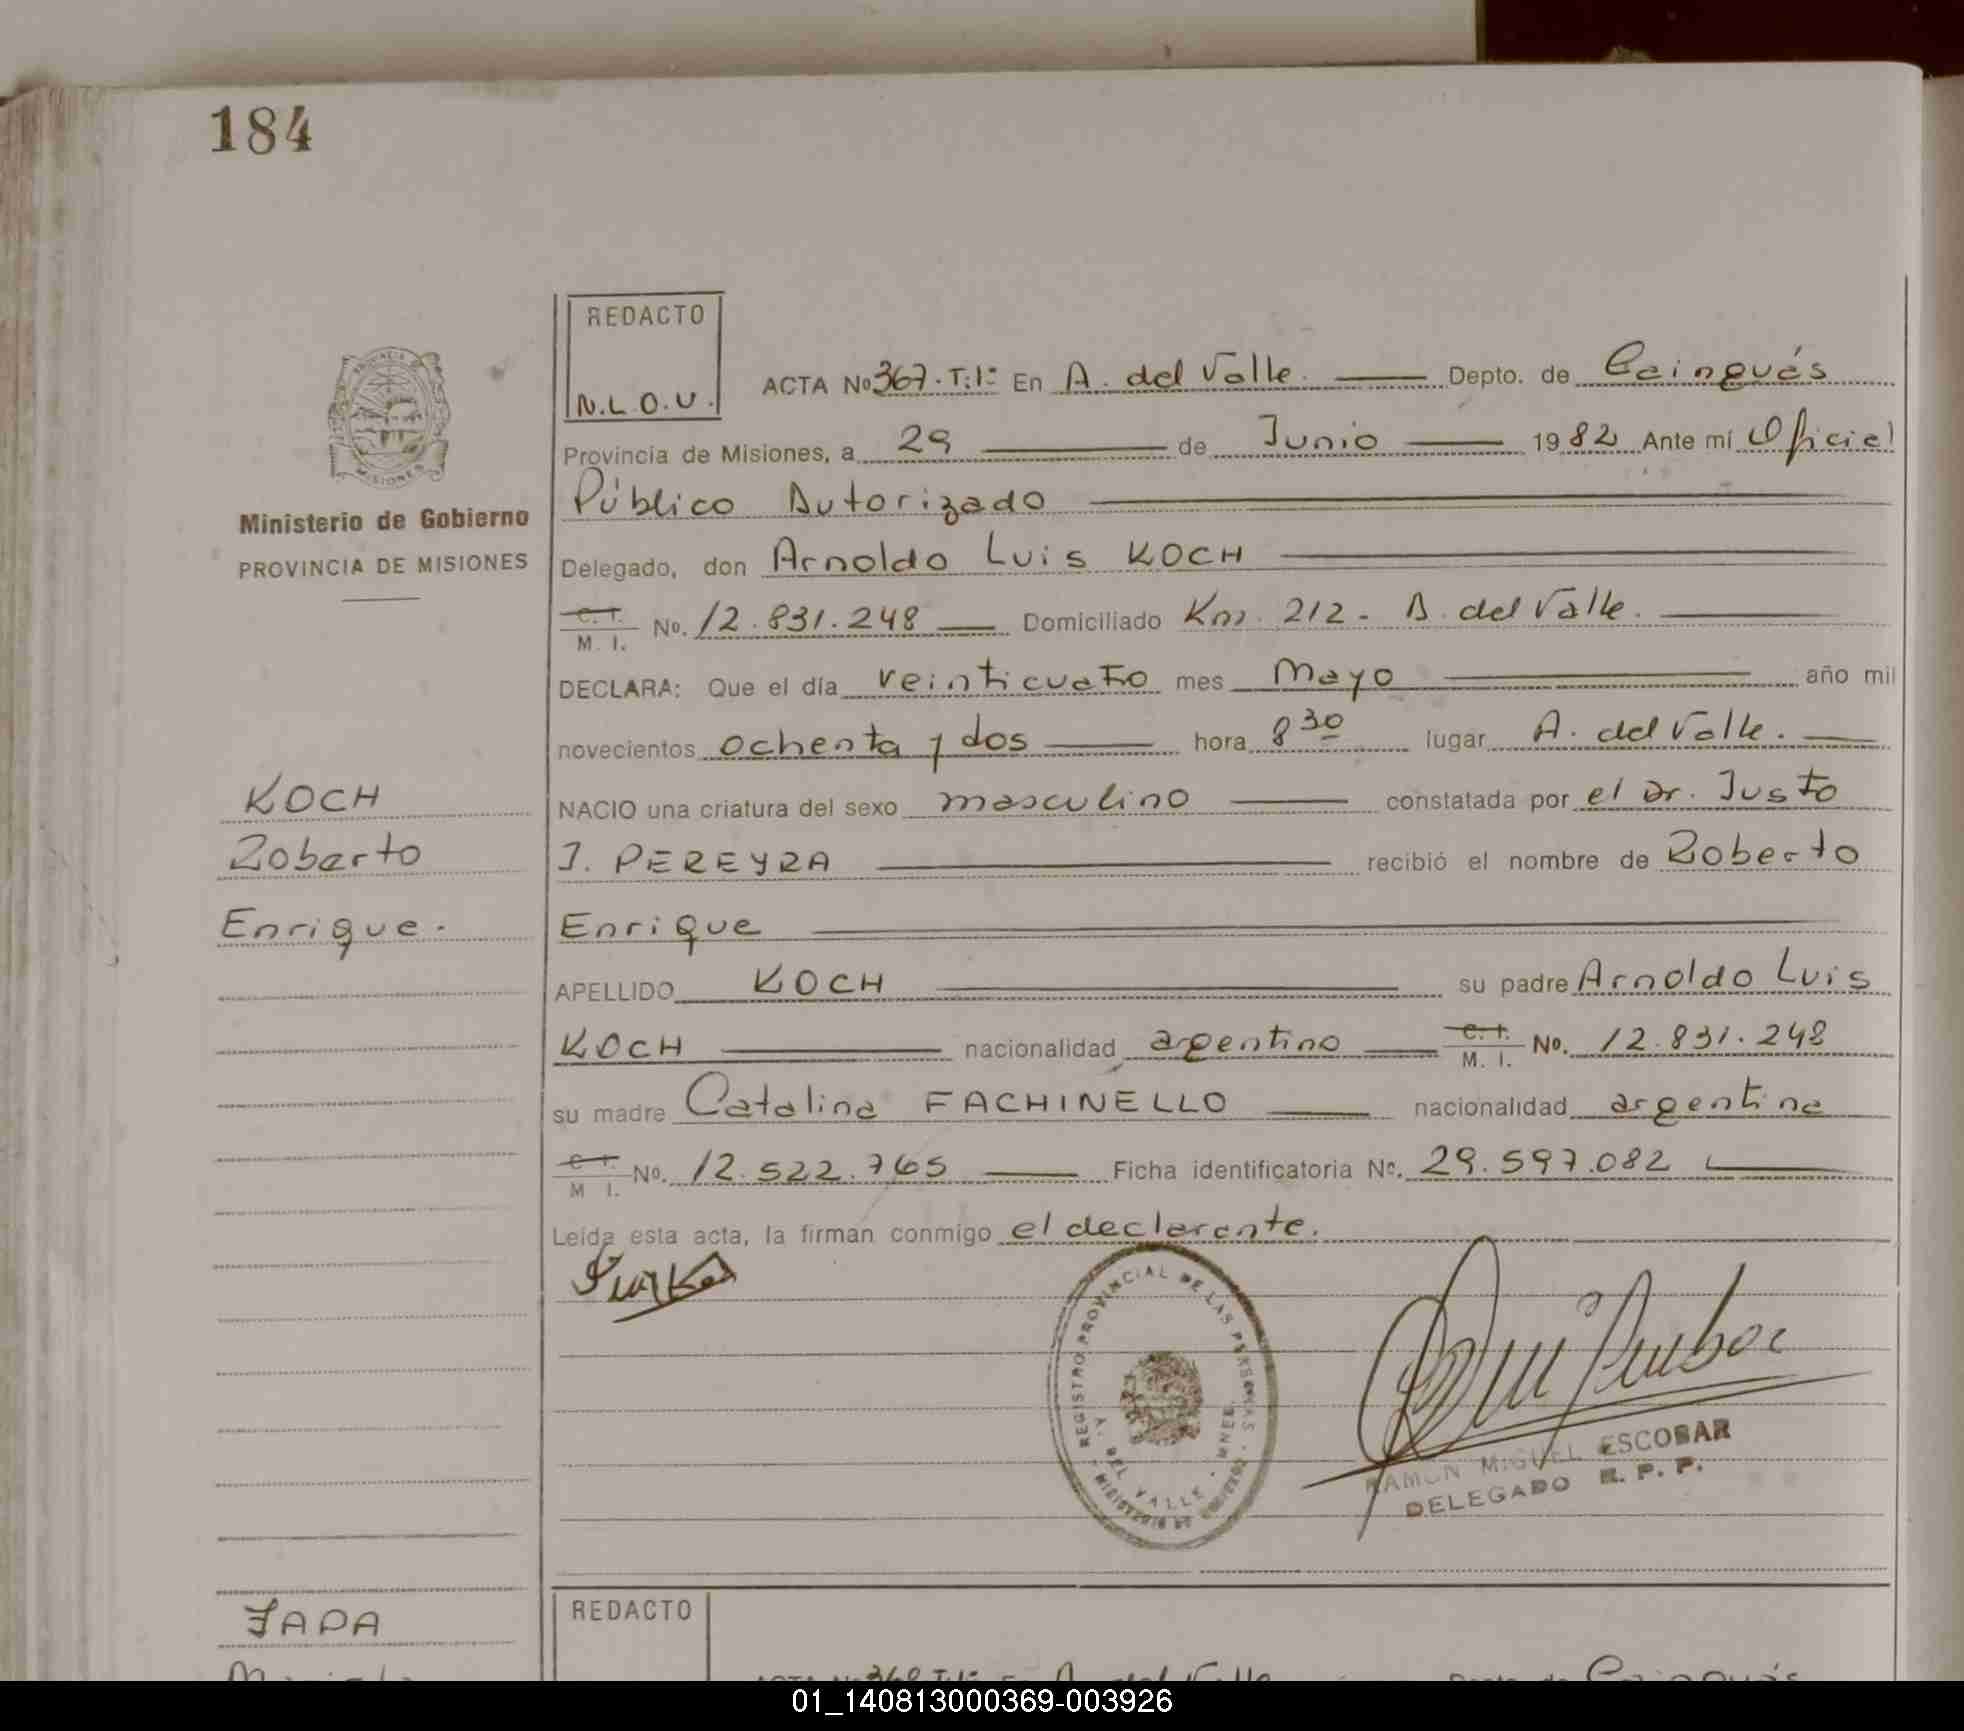 184
REDACTO
N.L.O.V.
ACTA No 367. T:1º En A. del Valle. Depto. de Cainguás
Provincia de Misiones, a 29 de Junio 1982 Ante mí Oficial
Público Autorizado
Ministerio de Gobierno
PROVINCIA DE MISIONES
Delegado, don Arnoldo Luis KOCH
C. I. M. I. No. 12.831.248 Domiciliado Km. 212 - A. del Valle.
DECLARA: Que el día veinticuatro mes Mayo año mil
novecientos ochenta y dos hora 8 30 lugar A. del Valle.
KOCH
NACIO una criatura del sexo masculino constatada por el Dr. Justo
Roberto
J. PEREYRA recibió el nombre de Roberto
Enrique.
Enrique
APELLIDO KOCH su padre Arnoldo Luis
KOCH nacionalidad argentino C. I. M. I. No. 12.831.248
su madre Catalina FACHINELLO nacionalidad argentina
C. I. M. I. No. 12.522.765 Ficha identificatoria Nº. 29.597.082
Leída esta acta, la firman conmigo el declarante.
REGISTRO PROVINCIAL DE LAS PERSONAS
A. DEL VALLE - MNES.
RAMON MIGUEL ESCOBAR
DELEGADO R. P. P.
REDACTO
ZAPA
ACTA No 368 T:1º En A. del Valle Depto. de Cainguás
01_140813000369-003926